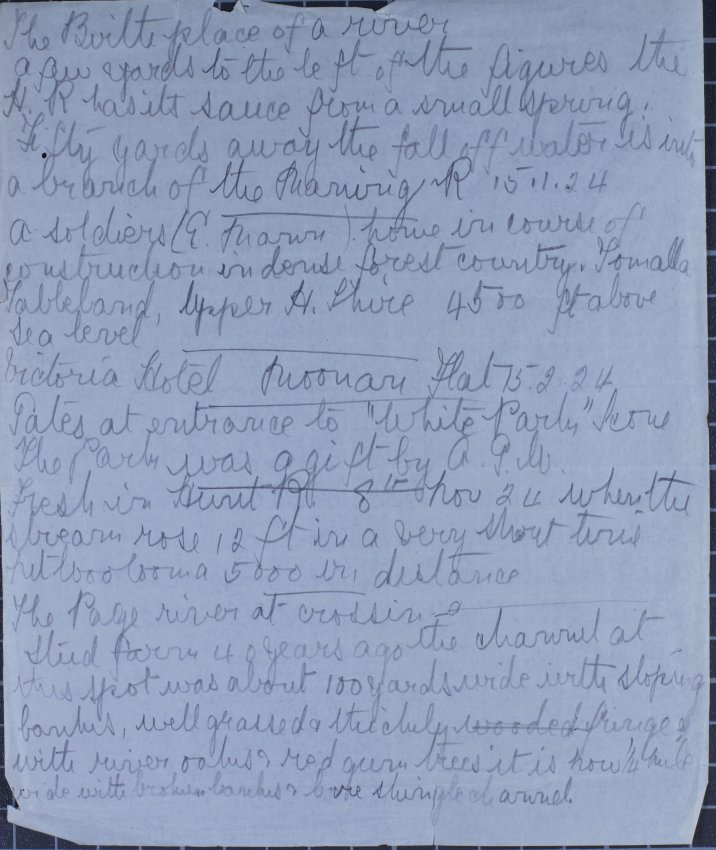 The Birth place of a river
a few yards to the left of the figures the
H. R has its sauce from a small spring.
Fifty yards away the fall off water is into
a branch of the Maning R 15.11.24
a soldiers (E. Mann) home in course of
construction in dense forest country. Tomalla
Tableland, Upper H. Shire 4500 ft above
Sea level
Victoria Hotel Moonan Flat 15.2.24
Gates at entrance to "White Park" Scone
The Park was a gift by A. G. W.
Fresh in Hunt R 8th Nov 24 when the
stream rose 12 ft in a very short time
5000 in distance
The Page river at crossing
Stud farm 40 years ago the channel at
this spot was about 100 yards wide with sloping
banks, well grassed & thickly wooded fringed
with river oaks & red gum trees it is now 1/4 mile
wide with broken banks & bare shingle channel.